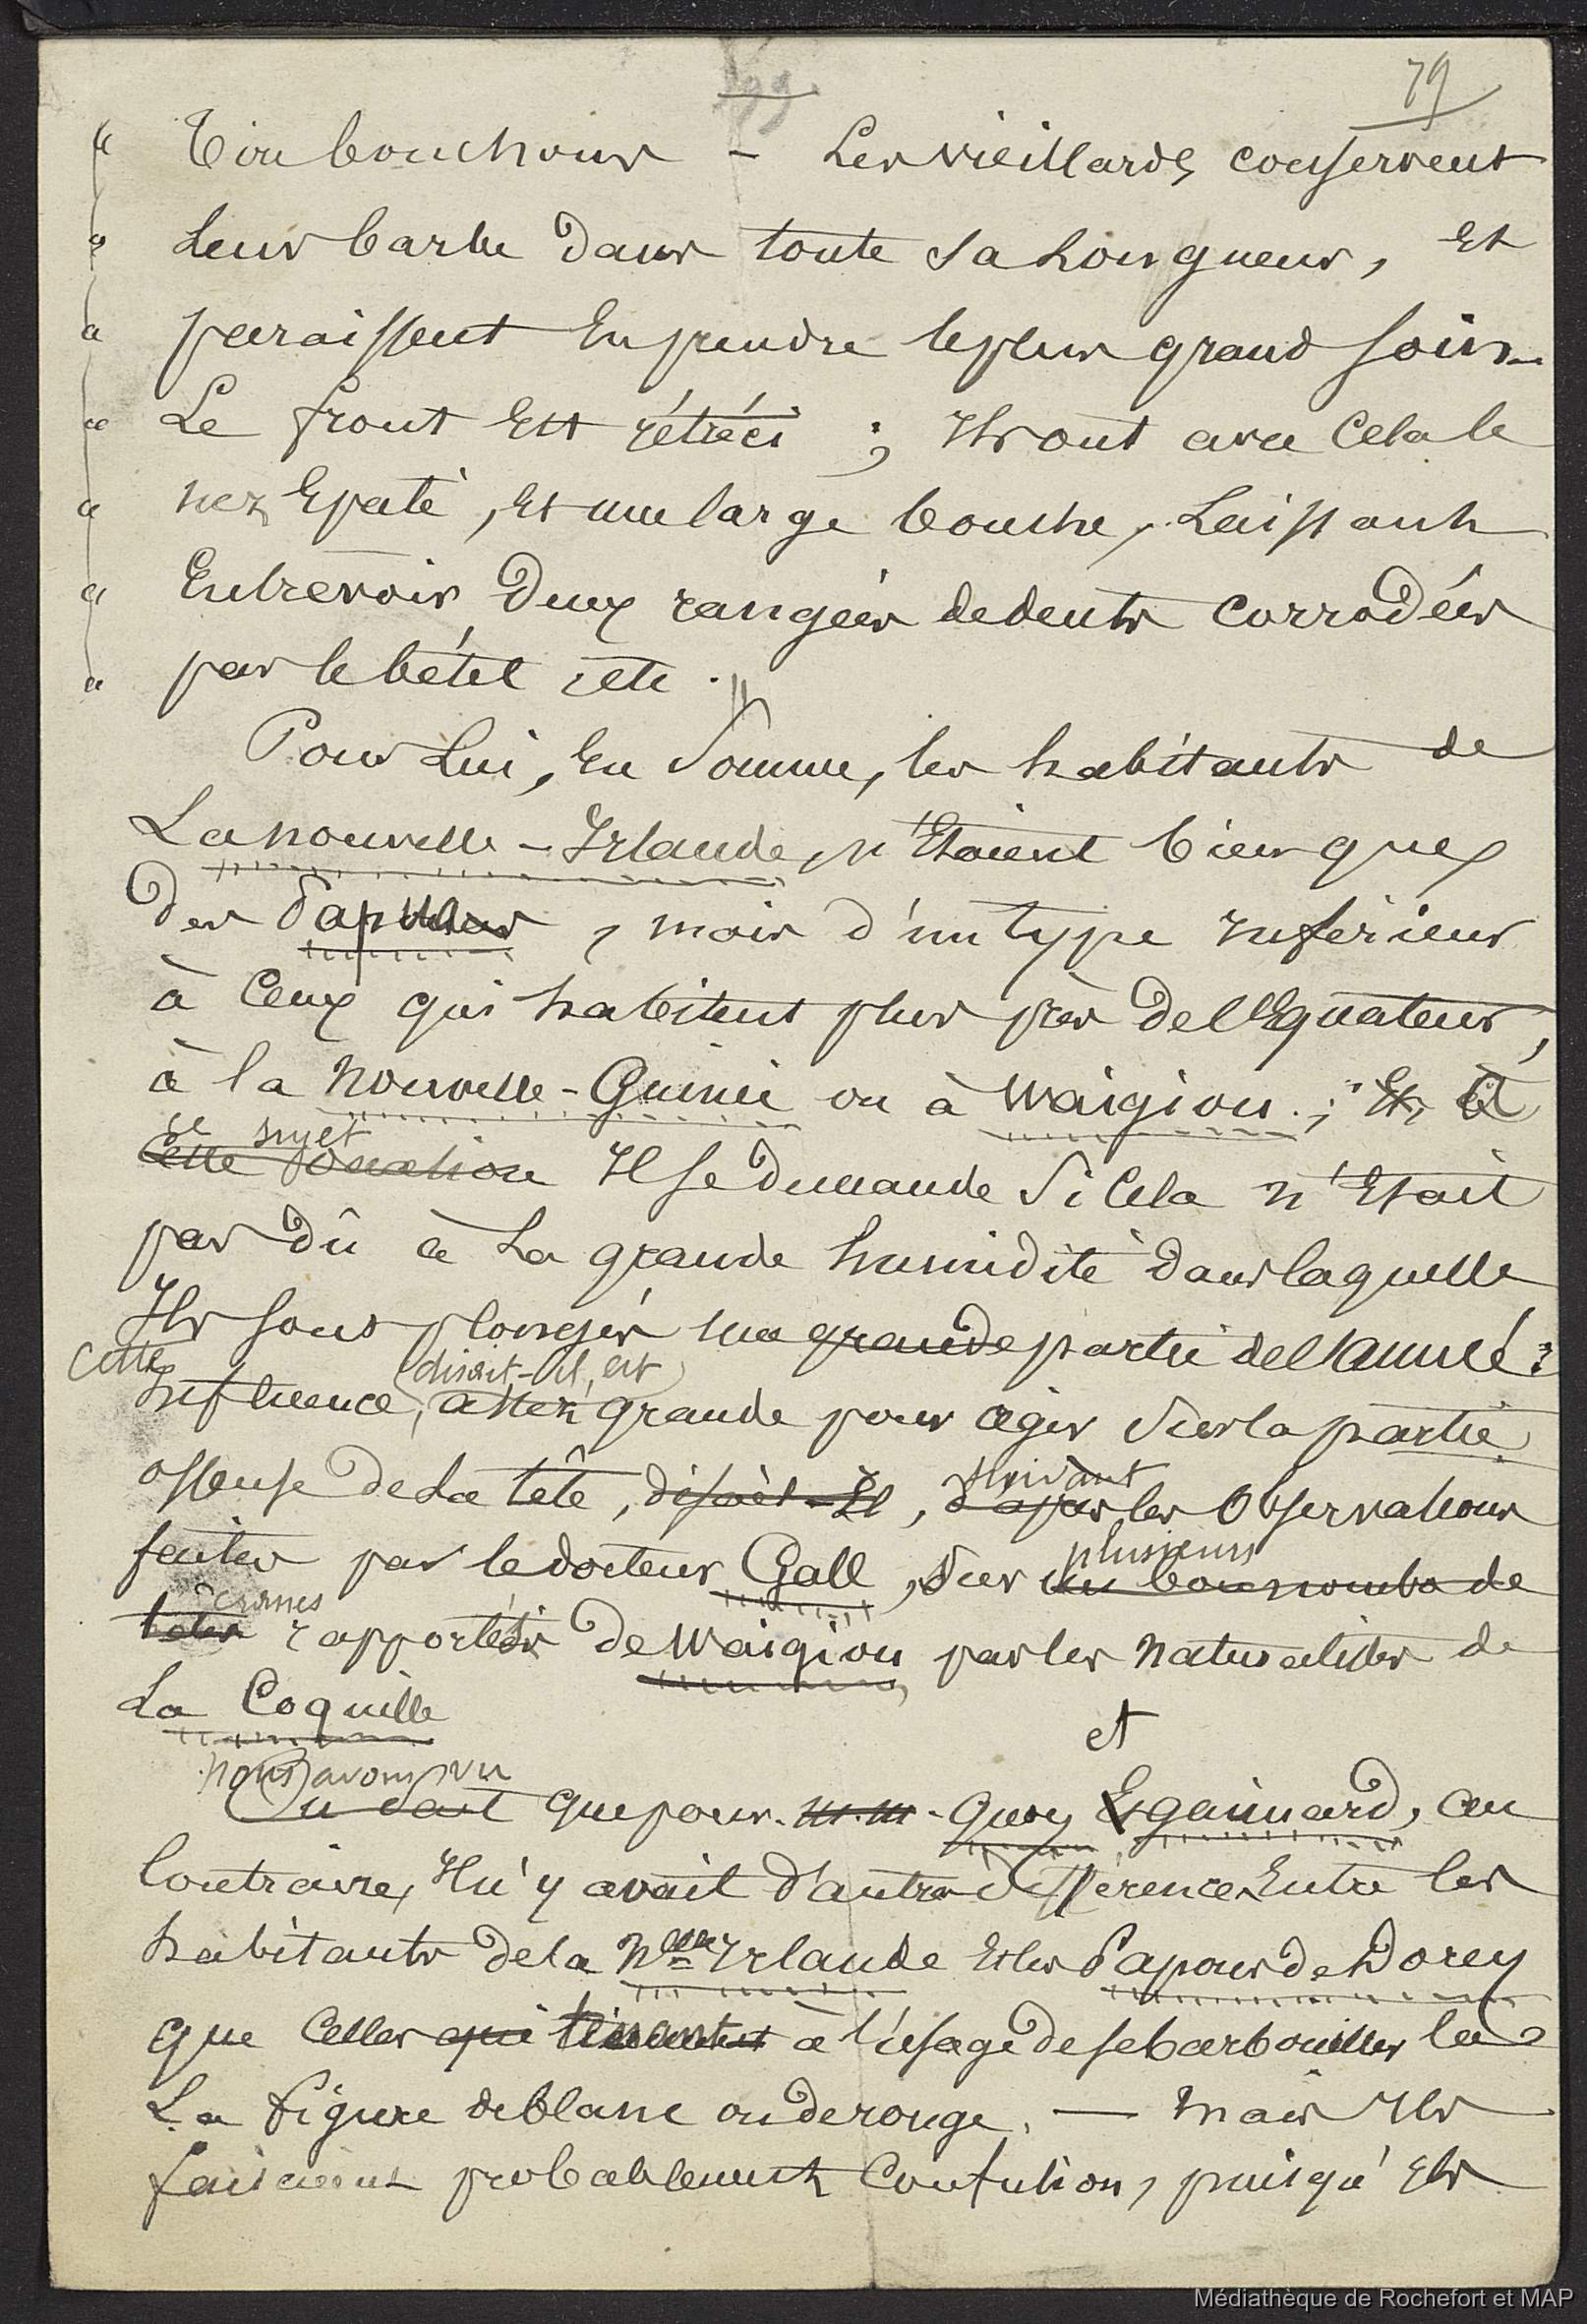 79
" Tire bouchons – Les vieillards conservent
" leur barbe dans toute sa longueur, Et
" paraissent En prendre le plus grand soin.
" Le front Est rétréci ; Ils ont avec Cela le
" nez Epaté, Et une large bouche, Laissant
" Entrevoir Deux rangées de dents corrodées
" par le bétel, etc. "
Pour Lui, En Somme, les habitants de
La nouvelle-Irlande, n'Etaient bien que
Des Papous, mais d'un type Inférieur
à Ceux qui habitent plus près De l'Equateur,
à la Nouvelle-Guinée ou à Waigiou. ; Et, à
ce sujet
Cette Il se demande Si Cela n'Etait
pas Dû à La grande humidité Dans laquelle
Ils sont plongés une grande partie de l'année :
Cette disait-il, est
Influence, assez grande pour agir Sur la partie
suivant
osseuse De La tête, disait-Il, d'après les Observations
plusieurs
faites par le docteur Gall, Sur un bon nombre de
crânes
têtes rapportés De Waigiou par les Naturalistes de
La Coquille
et
nous avons vu
On sait que pour M.M. Quoy Et gaimard, au
Contraire, Il n'y avait D'autre Différence Entre les
habitants de la Nelle Irlande Et les Papous de Dorey
que Celles qui tenant à l'usage de se barbouiller la
La figure de blanc ou de rouge. — Mais Ils
faisaient probablement Confusion, puisqu'Ils
Médiathèque de Rochefort et MAP